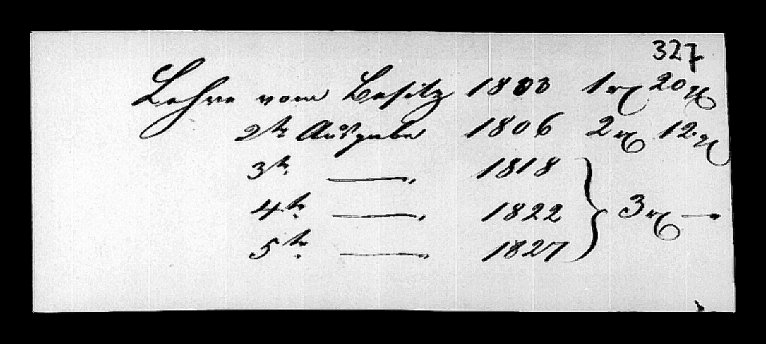 327
Lehre vom Besitz 1803 1 rθ 20 g
2te Ausgabe 1806 2 rθ 12 g
3te — 1818
4te — 1822 3 rθ —
5te — 1827